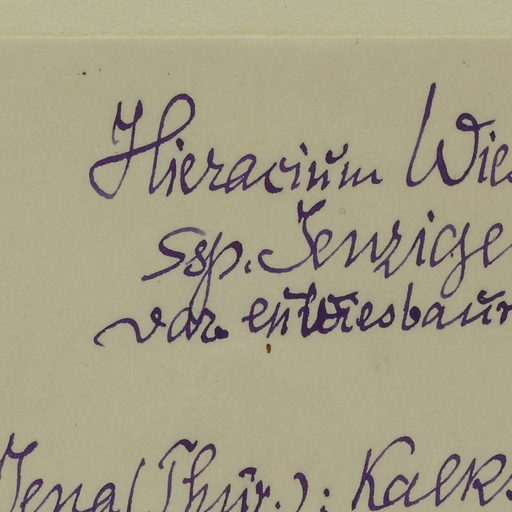 Hieracium Wies
ssp. Jenzige
var. euWiesbaur
Jena (Thür.): Kalks